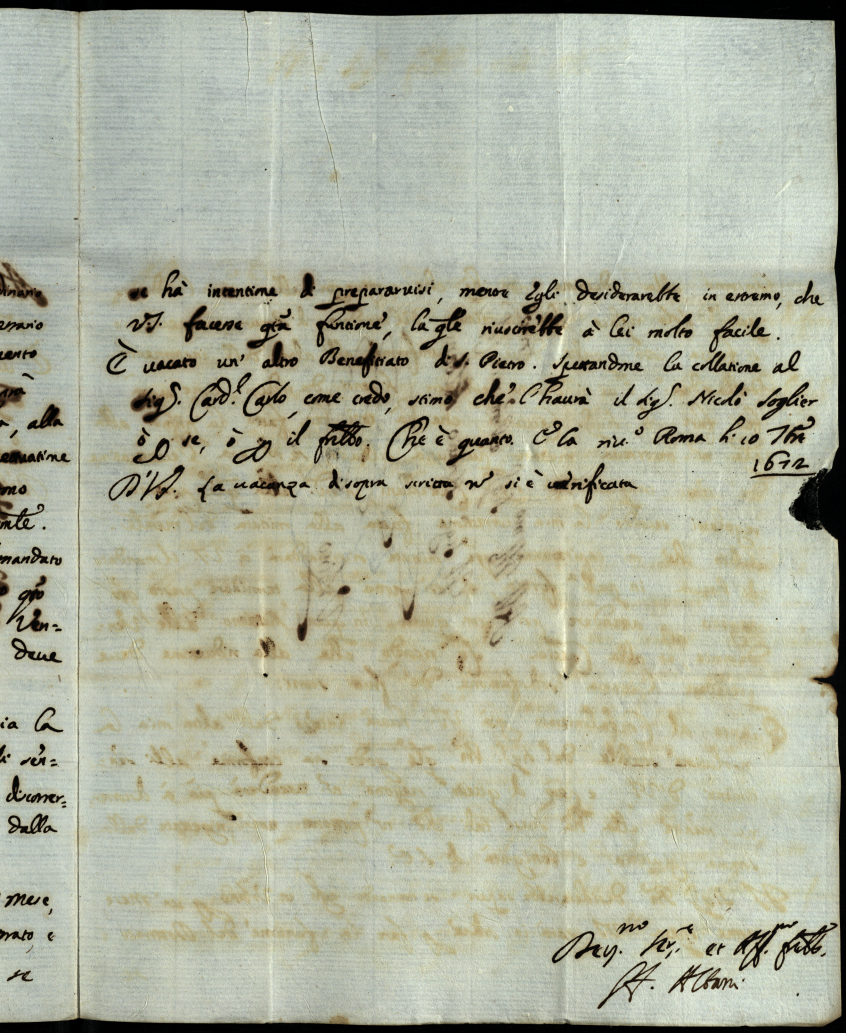 dinario
ento
a, alla
ono
mandato
Ven=
deue
ia la
li sen=
discorrer=
dalla
mese,
se
se hà intentione di prepararuisi, mentre Egli desiderarebbe in estremo, che
V.S. facesse q.ta funtione, la q͞le riuscirebbe à lei molto facile.
È uacato un' altro Benefitiato di S. Pietro. Spettandone la collatione al
Sig.r Card.l Carlo, come credo, stimo, che l'haurà il Sig.r Nicolò Soglier
ò p se, ò p il fr͞ello. Che è quanto. E la riu.o Roma li 10 7bre
1672
D.V.S. La uacanza di sopra scritta n͞o si è uerificata
Deu.mo Ser.e et Aff.mo fr͞ello.
Albani